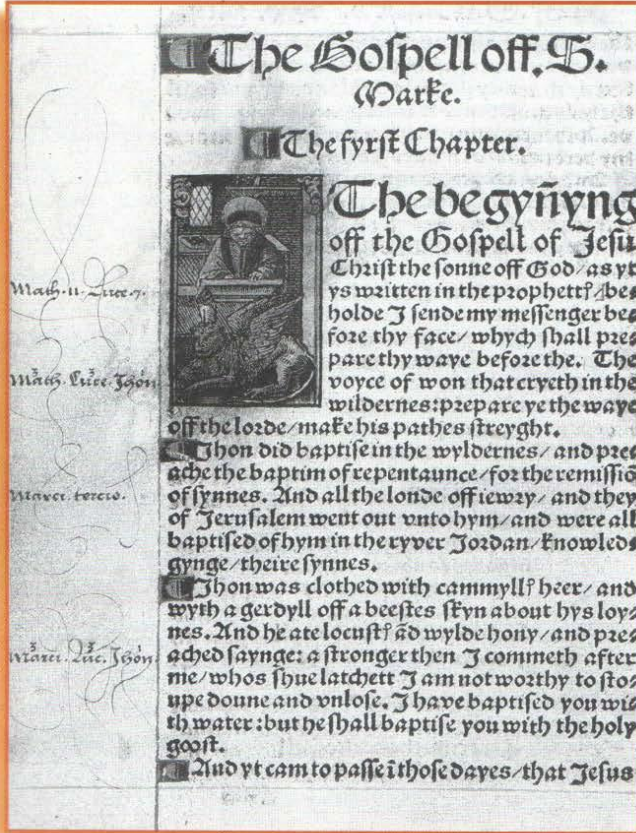 The Gospell off. S.
Marke.
The fyrst Chapter.
The begyn̄yng
off the Gospell of Jesu
Christ the sonne off God/as yt
ys written in the prophettꝭ/be⸗
holde I sende my messenger be⸗
fore thy face/whych shall pre⸗
pare thy waye before the. The
voyce of won that cryeth in the
wildernes:prepare ye the waye
off the lorde/make his pathes streyght.
Ihon did baptise in the wyldernes/and pre⸗
ache the baptim of repentaunce/for the remissiō
of synnes. And all the londe off iewry/and they
of Jerusalem went out vnto hym/and were all
baptised of hym in the ryver Jordan/knowled⸗
gynge/theire synnes.
Ihon was clothed with cammyllꝭ heer/and
wyth a gerdyll off a beestes skyn about hys loy⸗
nes. And he ate locustꝭ ād wylde hony/and pre⸗
ached saynge: a stronger then I commeth after
me/whos shue latchett I am not worthy to sto⸗
upe doune and vnlose. I have baptised you wi⸗
th water:but he shall baptise you with the holy
goost.
And yt cam to passe ī those dayes/that Jesus
Math. 11. Luce. 7.
Math. Luce. Jhon
Marci. tercio.
Marci. Luc. Jhon.